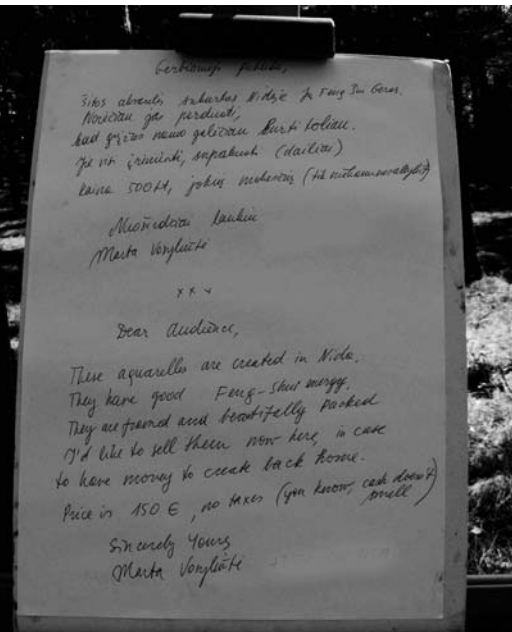 Gerbiamoji publika,
Šitos akvarelės sukurtos Nidoje jų Feng Šui Geras.
Norėčiau jas parduoti,
kad grįžus namo galėčiau kurti toliau.
Jie visi įrėminti, supakuoti (dailiai)
kaina 500Lt, jokių mokesčių
Nuoširdžiai laukiu
Marta Vosyliūtė
x x x
Dear Audience,
These aquarelles are created in Nida.
They have good Feng-Shui energy.
They are framed and beautifully packed
I'd like to sell them now here, in case
to have money to create back home.
Price is 150 €, no taxes (you know, cash doesn't
smell)
Sincerely Yours
Marta Vosyliūtė